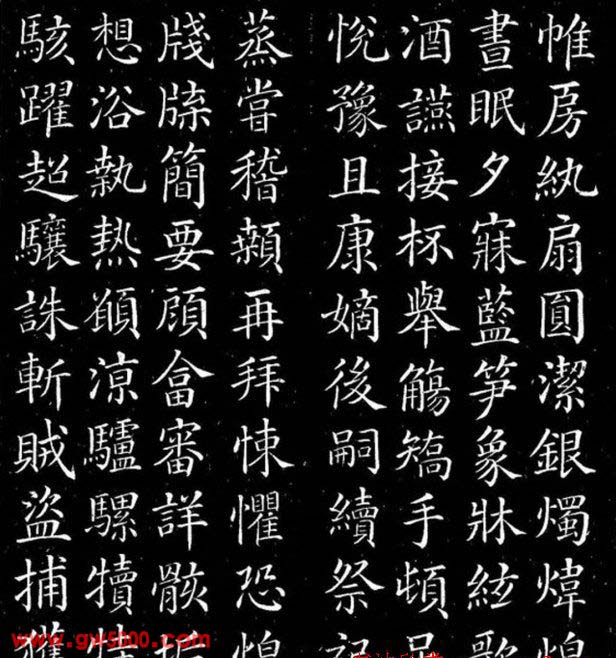 帷房紈扇圓潔銀燭煒煌
晝眠夕寐藍笋象牀絃歌
酒讌接杯舉觴矯手頓足
悅豫且康嫡後嗣續祭祀
蒸嘗稽顙再拜悚懼恐惶
牋牒簡要顧畣審詳骸垢
想浴執熱願涼驢騾犢特
駭躍超驤誅斬賊盜捕獲
www.gw5000.com